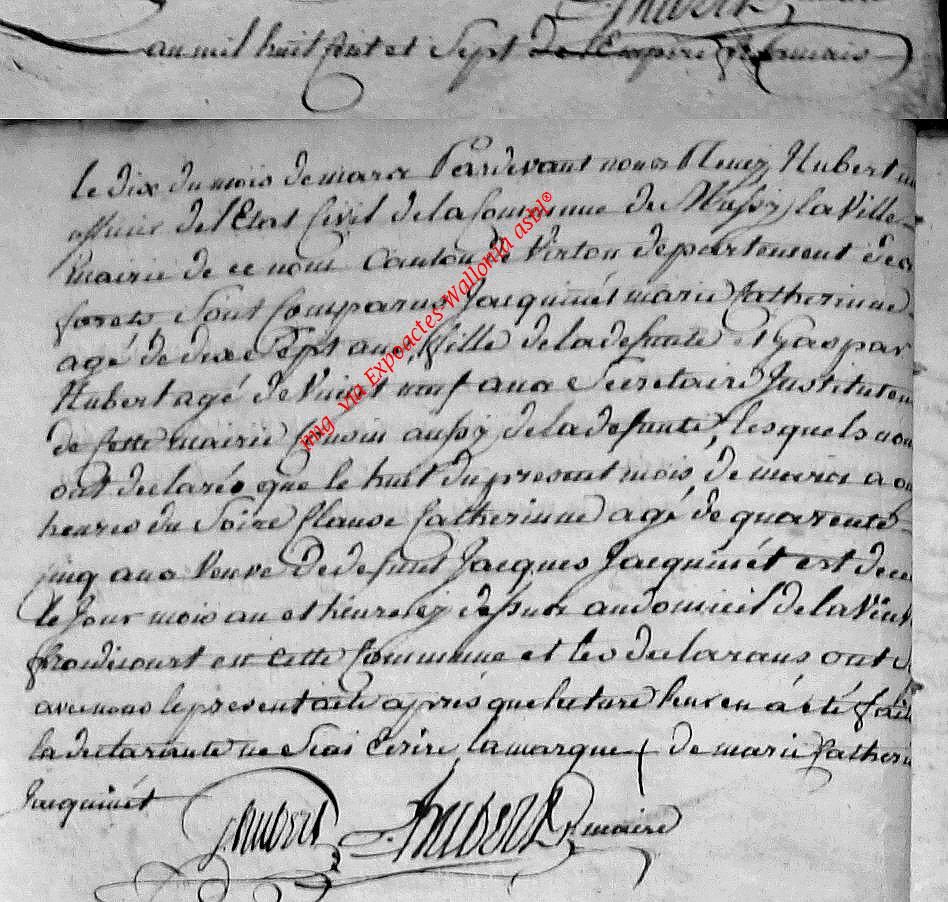 Jhubert maire
an mil huit Cent et Sept de l'Empire francais
le dix du mois de mars Pardevant nous Hubert
officier de l'Etat Civil de la Commune de Mussy la Ville
mairie de ce nom Canton de Virton departement des
forets Sont Comparus Jacquinét marie Catherinne
agé de dixe Sept ans fille de la defunte et Gaspar
Hubert agé de Vingt neuf ans Secretaire Instituteu
de Cette mairie Cousin aussy de la defunte, lesquels nou
ont declarés que le huit du present mois, de mars a
heures du Soire Clause Catherinne agé de quarente
cinq ans Veuve de defunt Jacques Jacquinét est dece
le Jour mois an et heure cy dessus au domicil de la
en Cette Commune et les declarans ont
avec nous le present acte aprés que lecture leur en á été fait
la declarante ne Scai Ecrire la marque de marie Catheri
Jacquinét
Ghubert Jhubert maire
img via Expoactes Wallonia asbl®